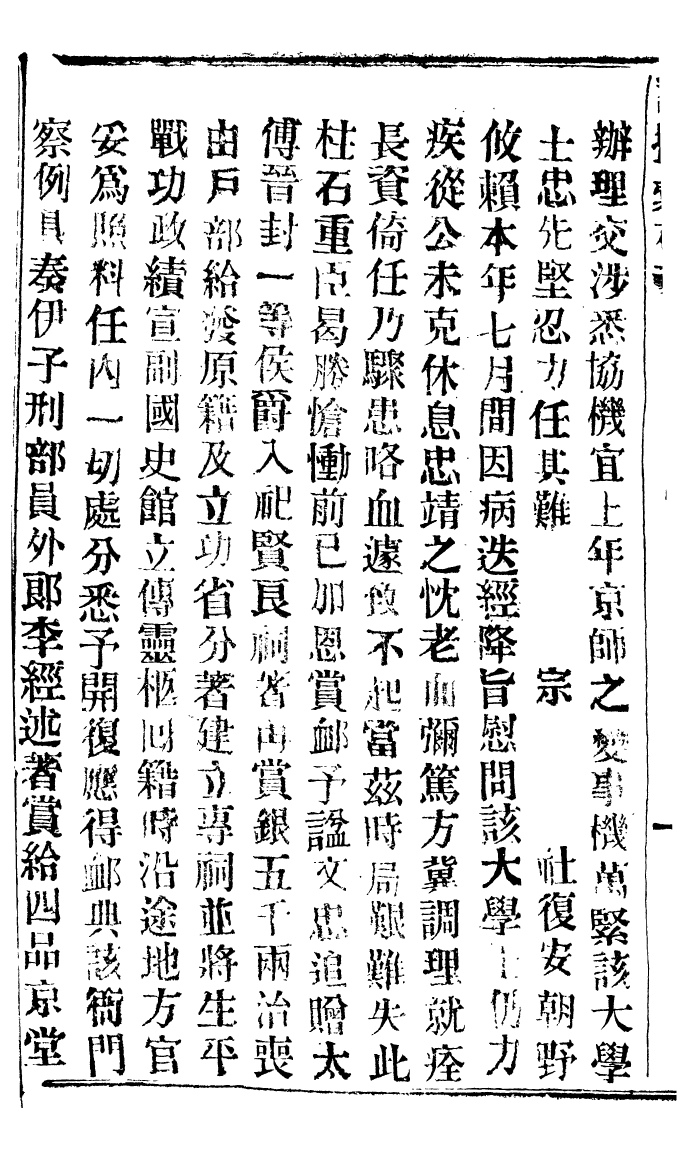 辦理交涉悉協機宜上年京師之變事機萬緊該大學
士忠先堅忍力任其難　宗　社復安朝野
攸賴本年七月間因病迭經降旨慰問該大學士仍力
疾從公未克休息忠靖之忱老而彌篤方冀調理就痊
長資倚任乃驟患咯血遽致不起當茲時局艱難失此
柱石重臣曷勝愴慟前已加恩賞卹予諡文忠追贈太
傅晉封一等侯爵入祀賢良祠著再賞銀五千兩治喪
由戶部給發原籍及立功省分著建立專祠並將生平
戰功政績宣副國史館立傳靈柩回籍時沿途地方官
妥為照料任內一切處分悉予開復應得卹典該衙門
察例具奏伊子刑部員外郎李經述著賞給四品京堂